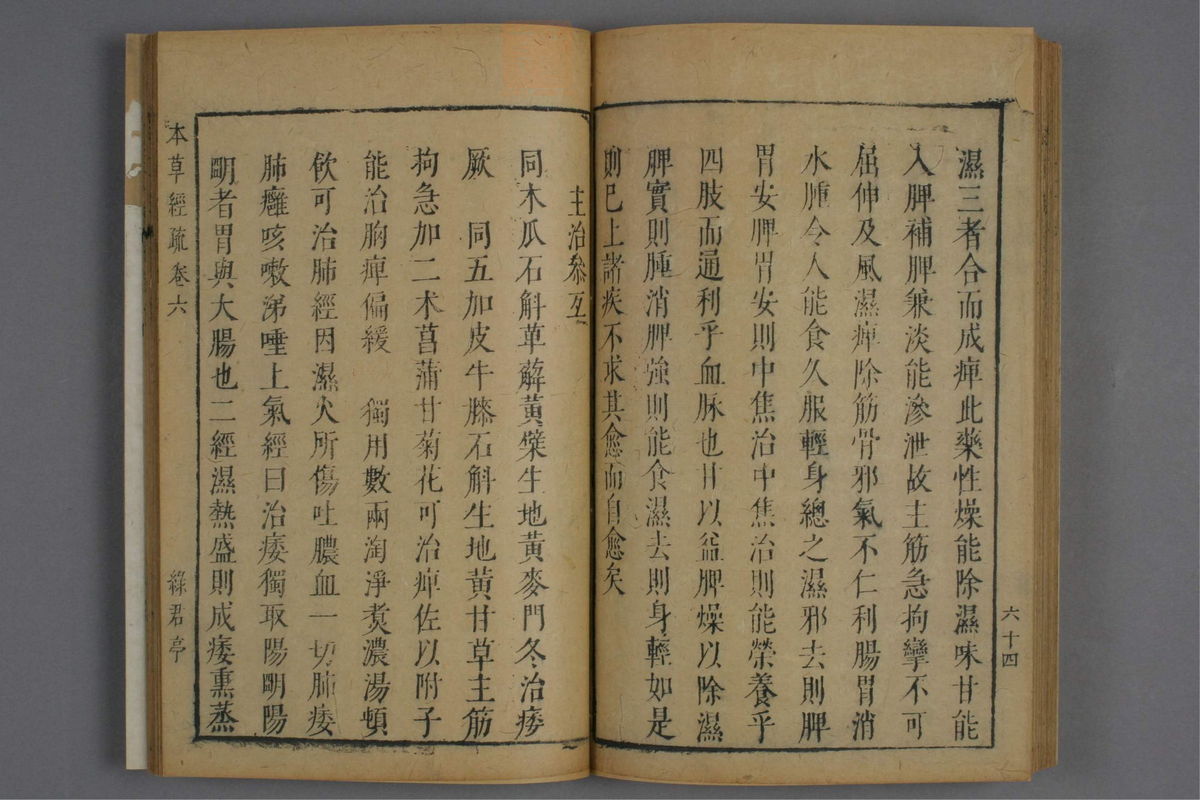 濕三者合而成痺此藥性燥能除濕味甘能
入脾補脾兼淡能滲泄故主筋急拘攣不可
屈伸及風濕痺除筋骨邪氣不仁利腸胃消
水腫令人能食久服輕身總之濕邪去則脾
胃安脾胃安則中焦治中焦治則能榮養乎
四肢而通利乎血脉也甘以益脾燥以除濕
脾實則腫消脾強則能食濕去則身輕如是
則已上諸疾不求其愈而自愈矣
六十四
主治叅互
同木瓜石斛萆薢黃檗生地黃麥門冬治痿
厥 同五加皮牛膝石斛生地黃甘草主筋
拘急加二术菖蒲甘菊花可治痺佐以附子
能治胸痺偏緩 獨用數兩淘淨煑濃湯頓
飲可治肺經因濕火所傷吐膿血一切肺痿
肺癰咳嗽涕唾上氣經曰治痿獨取陽明陽
明者胃與大腸也二經濕熱盛則成痿熏蒸
本草經疏卷六
綠君亭